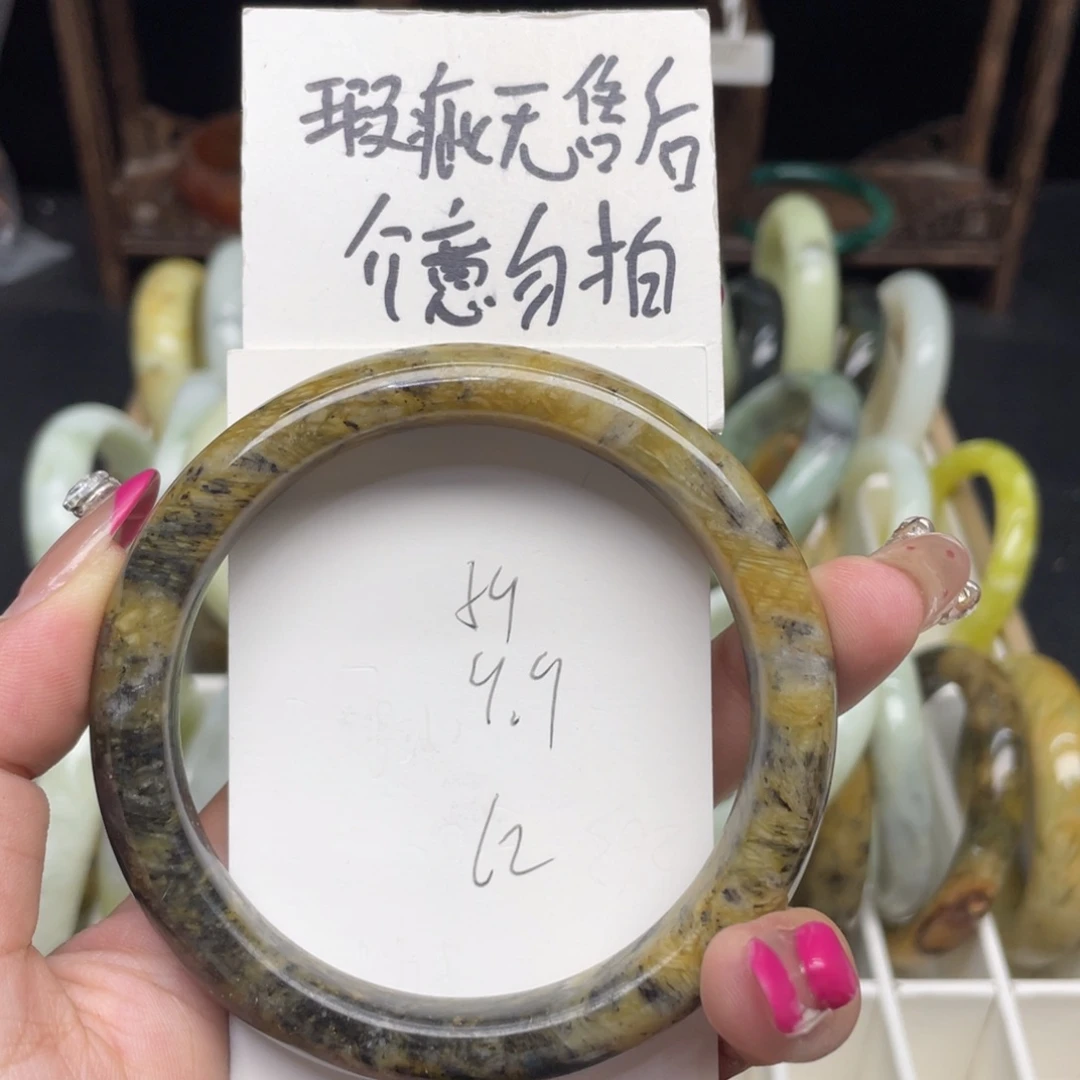 瑕疵无售后
介意勿拍
84
4.9
62